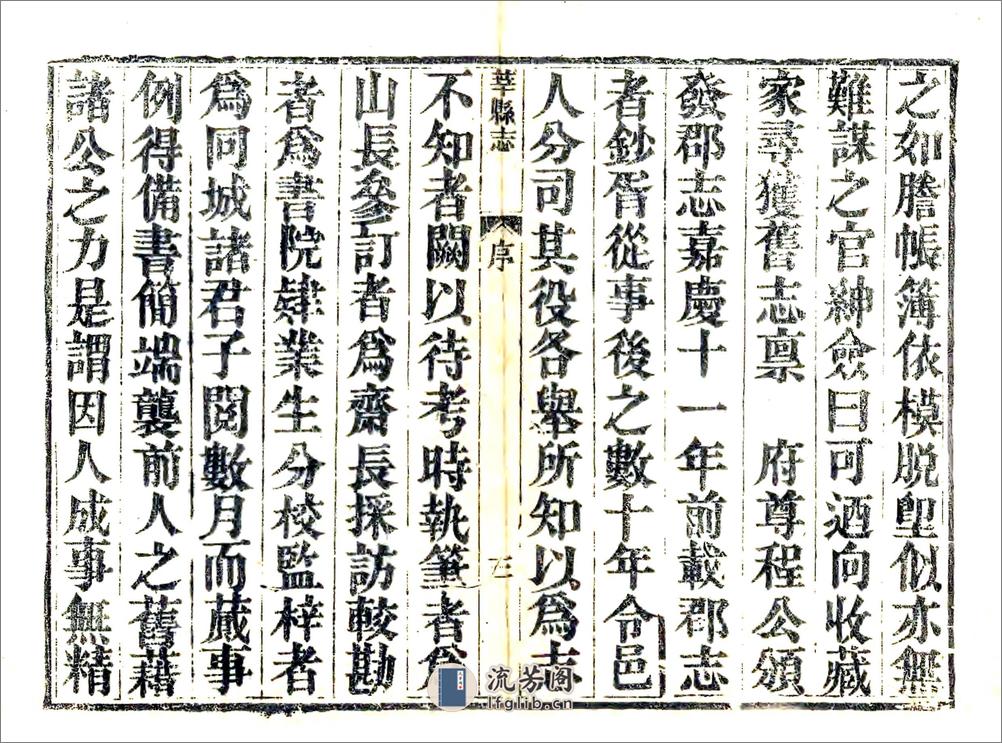 之如謄帳簿依模脱墼似亦無
難謀之官紳僉曰可迺向收藏
家尋獲舊志禀 府尊程公頒
發郡志嘉慶十一年前載郡志
者鈔胥從事後之數十年令邑
人分司其役各舉所知以爲志
莘縣志 序 三
不知者闕以待考時執筆者爲
山長參訂者爲齋長採訪較勘
者爲書院肄業生分校監梓者
爲同城諸君子閲數月而蕆事
例得備書簡端襲前人之舊藉
諸公之力是謂因人成事無精
流芳阁
lfglib.cn